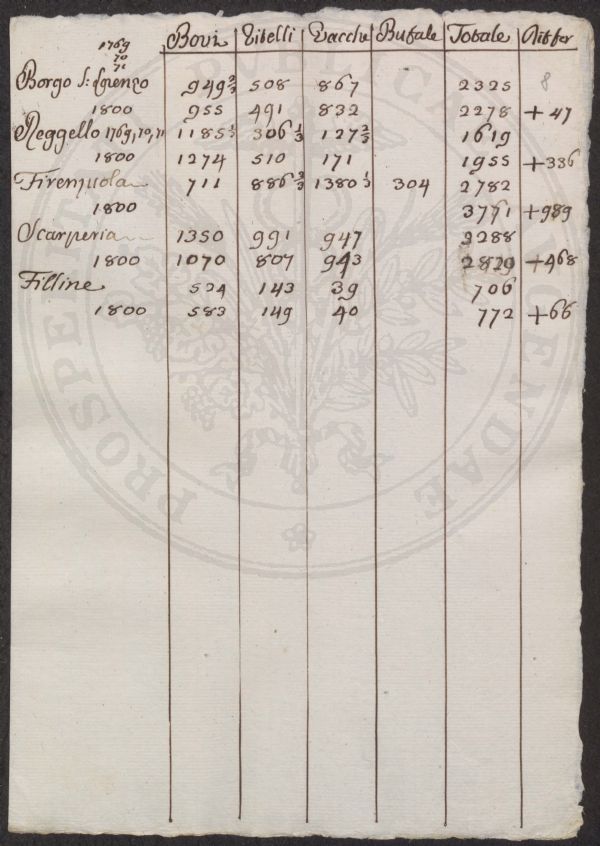 1769 Bovi Vitelli Vacche Bufale Totale Differ
70
71
Borgo S: Lorenzo 949 2/3 508 867 2325 8
1800 955 491 832 2278 +47
Reggello 1769, 70, 71 1185 1/3 306 1/3 127 2/3 1619
1800 1274 510 171 1955 +336
Firenzuola 711 886 2/3 1380 1/3 304 2782
1800 3771 +989
Scarperia 1350 991 947 3288
1800 1070 807 943 2820 +468
Filline 524 143 39 706
1800 583 149 40 772 +66
PROSPERITATI PUBLICAE AUGENDAE